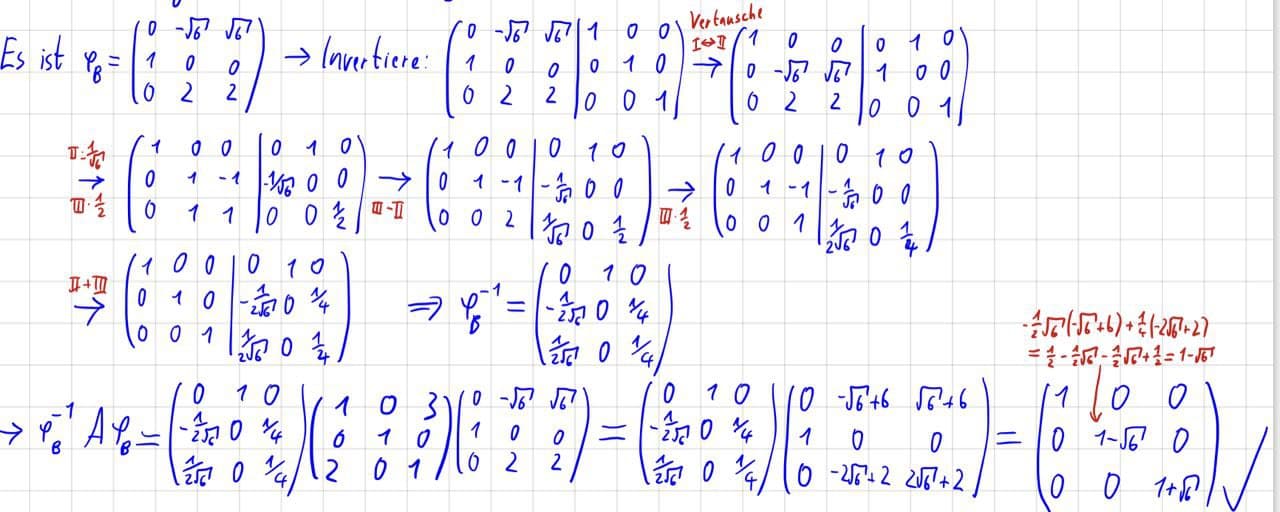 Es ist φ_B = (0 -√6 √6; 1 0 0; 0 2 2) → Invertiere: (0 -√6 √6 | 1 0 0; 1 0 0 | 0 1 0; 0 2 2 | 0 0 1) Vertausche I⇔II → (1 0 0 | 0 1 0; 0 -√6 √6 | 1 0 0; 0 2 2 | 0 0 1)
→ III·1/2 (1 0 0 | 0 1 0; 0 1 -1 | -1/√6 0 0; 0 1 1 | 0 0 1/2) → III-II (1 0 0 | 0 1 0; 0 1 -1 | -1/√6 0 0; 0 0 2 | 1/√6 0 1/2) → III·1/2 (1 0 0 | 0 1 0; 0 1 -1 | -1/√6 0 0; 0 0 1 | 1/2√6 0 1/4)
II+III → (1 0 0 | 0 1 0; 0 1 0 | -1/2√6 0 1/4; 0 0 1 | 1/2√6 0 1/4) ⇒ φ_B^-1 = (0 1 0; -1/2√6 0 1/4; 1/2√6 0 1/4)
-1/2√6(-√6+6)+1/4(-2√6+2)
=1/2-1/2√6-1/2√6+1/2=1-√6
→ φ_B^-1 A φ_B = (0 1 0; -1/2√6 0 1/4; 1/2√6 0 1/4) (1 0 3; 0 1 0; 2 0 1) (0 -√6 √6; 1 0 0; 0 2 2) = (0 1 0; -1/2√6 0 1/4; 1/2√6 0 1/4) (0 -√6+6 √6+6; 1 0 0; 0 -2√6+2 2√6+2) = (1 0 0; 0 1-√6 0; 0 0 1+√6) ✓